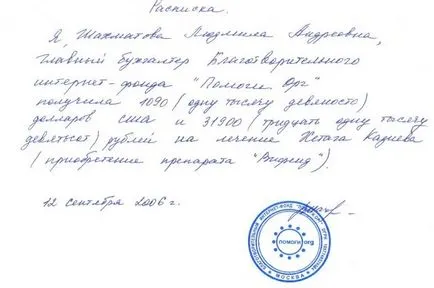 Расписка.
Я, Шахматова Людмила Андреевна,
главный бухгалтер Благотворительного
интернет-фонда "Помоги.Орг"
получила 1090 (одну тысячу девяносто)
долларов сша и 31900 (тридцать одну тысячу
девятьсот) рублей на лечение Хетага Кадиева
(приобретение препарата "Вифенд").
12 сентября 2006 г.
БЛАГОТВОРИТЕЛЬНЫЙ ИНТЕРНЕТ-ФОНД
помоги.org
МОСКВА